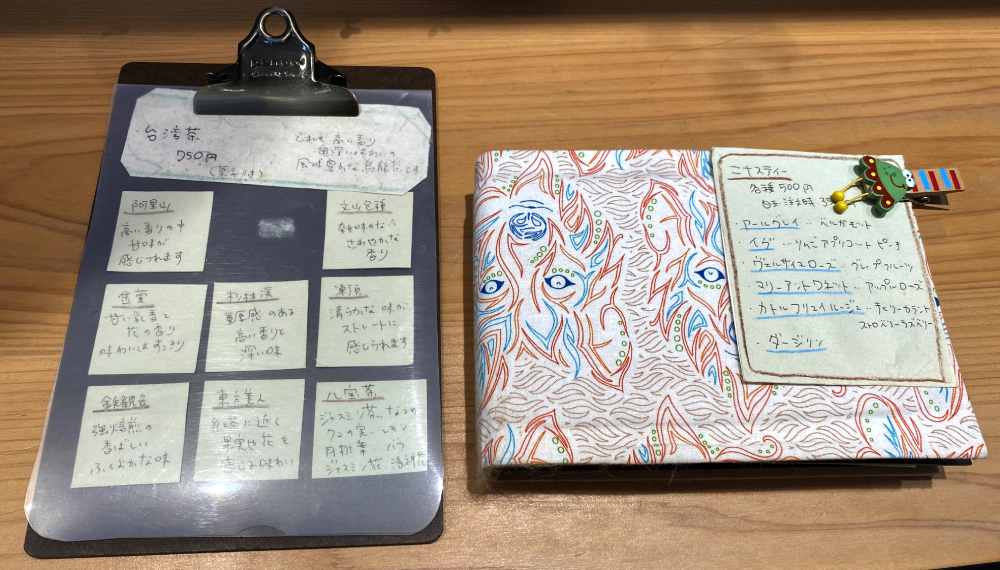 台湾茶
750円
(菓子付)
どれも高い香り
奥深い味わいの
風味豊かな烏龍茶です
阿里山
高い香りの中
甘味が
感じられます
文山包種
雑味のない
さわやかな
香り
金萱
甘い乳香と
花の香り
味わいはすっきり
杉林渓
重厚感のある
高い香りと
深い味
凍頂
清らかな味が
ストレートに
感じられます
鉄観音
強焙煎の
香ばしい
ふくよかな味
東方美人
紅茶に近く
果実や花を
感じる味わい
八宝茶
ジャスミン茶、なつめ
クコの実、レモン
月桃葉 バラ
ジャスミン花
ニナスティー
各種500円
・アールグレイ・ベルガモット
・イヴ・・りんごアプリコットピーチ
ヴェルサイユローズ・グレープフルーツ
マリーアントワネット・アップルローズ
・カトルフリュイルージュ・チェリーカラント
ストロベリーラズベリー
・ダージリン